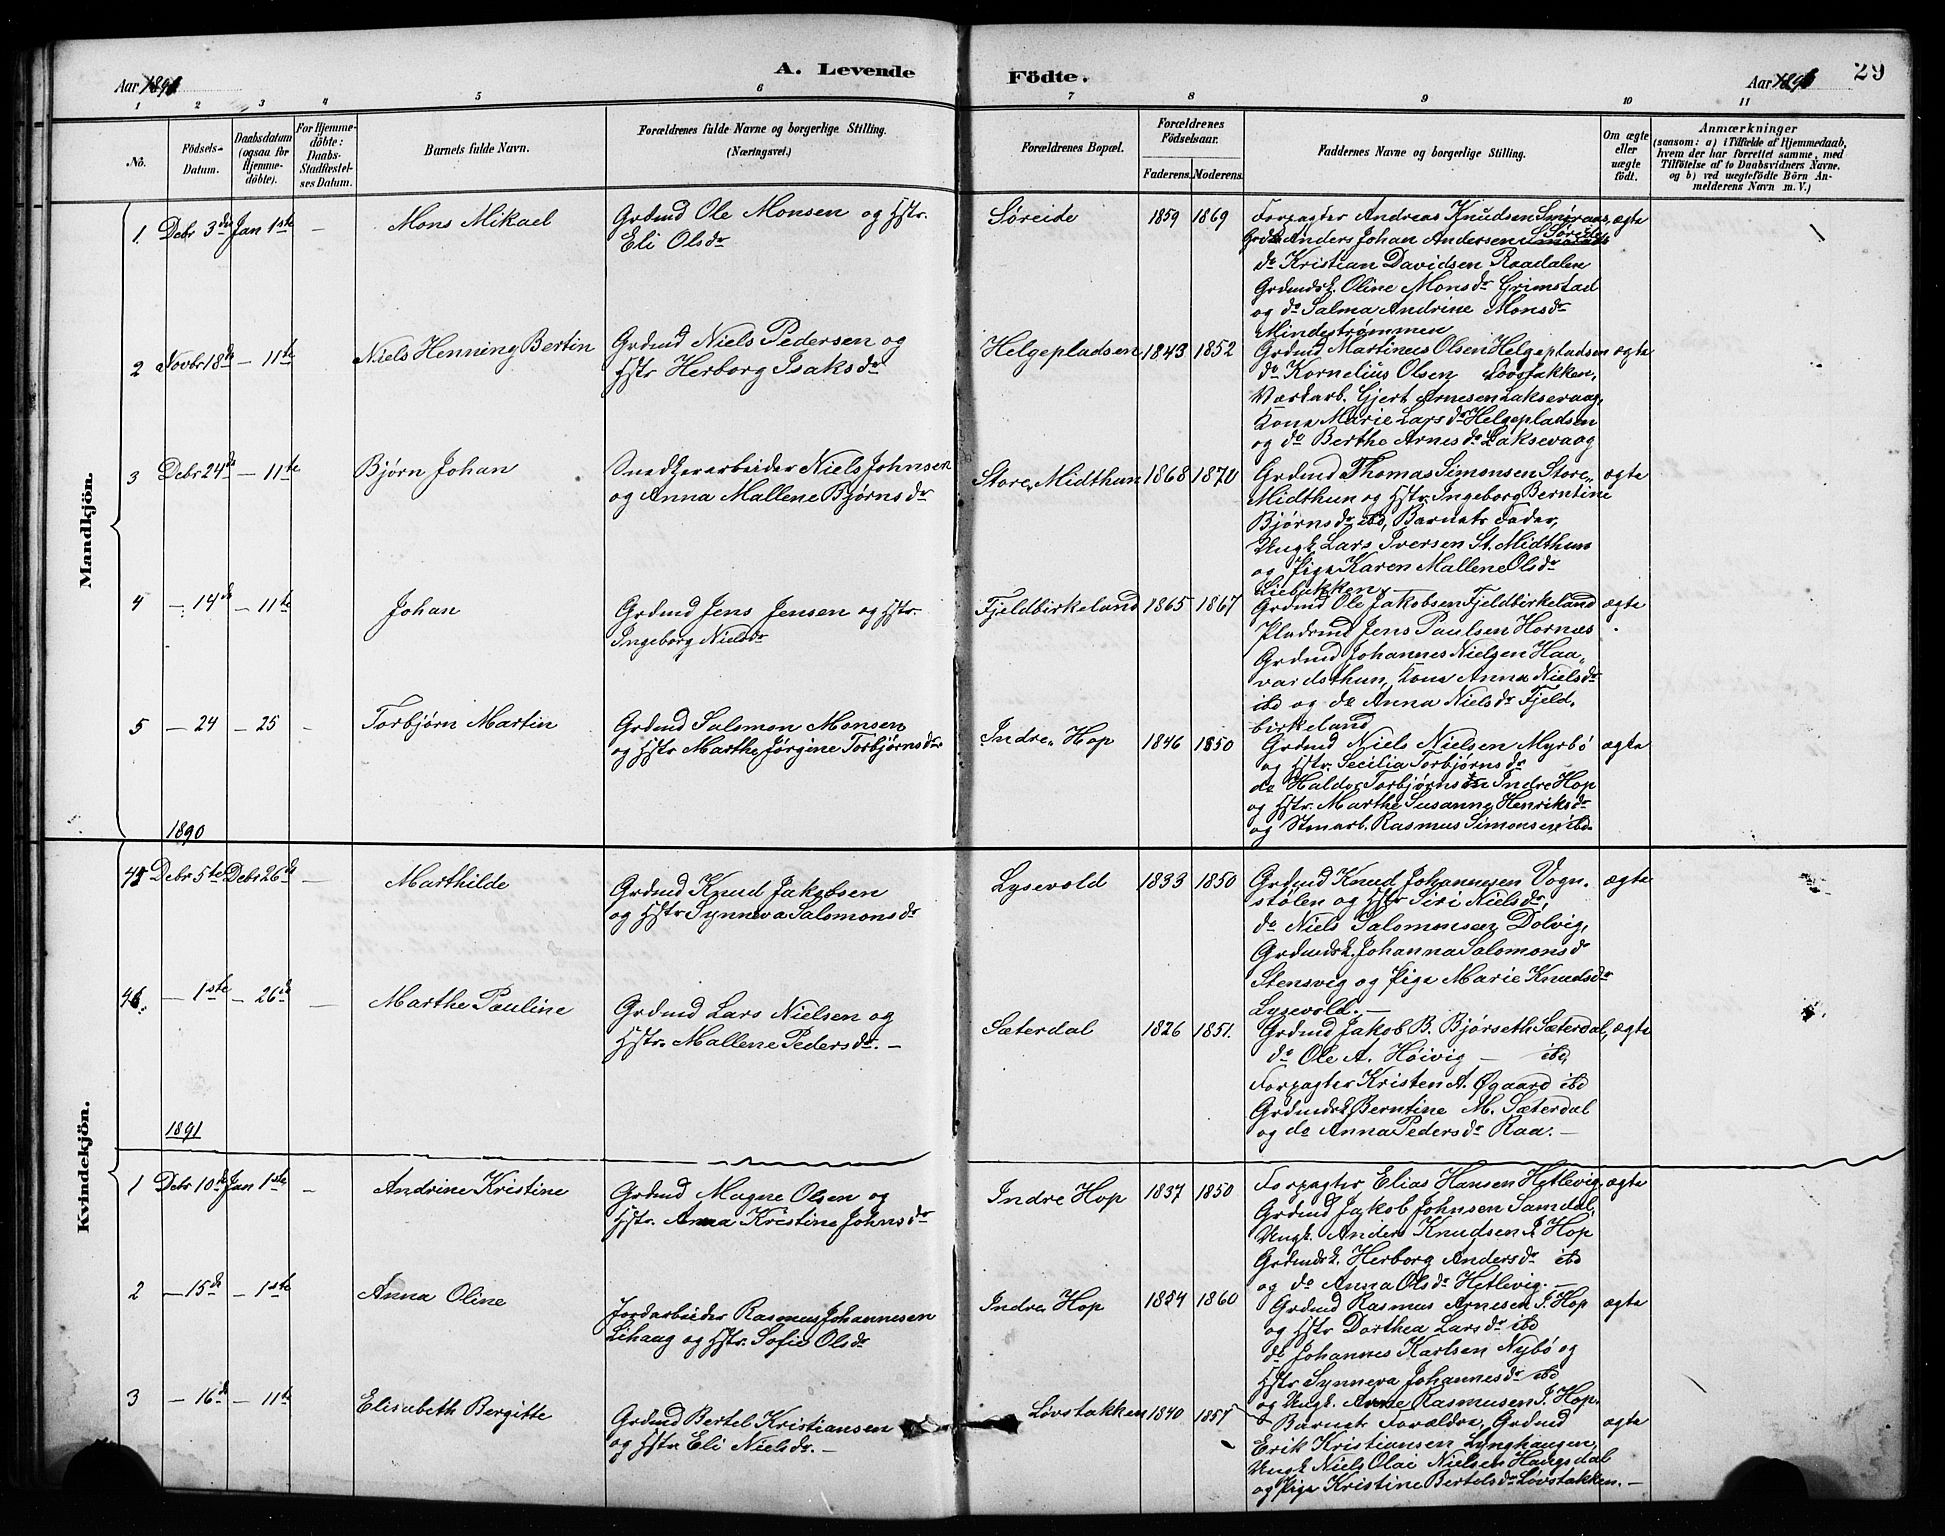 A. Levende Födte.
29
Aar 1891
Aar 1891
1 2 3 4 5 6 7 8 9 10 11
No.
Födsels-Datum.
Daabsdatum (ogsaa for Hjemme-döbte).
For Hjemme-döbte: Daabs-Stadfæstel-ses Datum.
Barnets fulde Navn.
Forældrenes fulde Navne og borgerlige Stilling.
(Næringsvei.)
Forældrenes Bopæl.
Forældrenes Födselsaar.
Faderens. Moderens.
Faddernes Navne og borgerlige Stilling.
Om ægte eller uægte födt.
Anmærkninger
(saasom: a) i Tilfælde af Hjemmedaab,
hvem der har forrettet samme, med
Tilföielse af to Daabsvidners Navne.
og b) ved uægtefödte Börn An-
melderens Navn m. V.)
Mandkjön.
1 Debr 3die Jan 1ste – Mons Mikael
Grdmd Ole Monsen og Hstr.
Eli Olsdr
Søreide 1859 1869
Forpagter Andreas Knudsen Smøraas, ægte
Grdbr Anders Johan Andersen Søreide
do Kristian Davidsen Raadalen
Grdmdsk. Oline Monsdr Grimstad
og do Salma Andrine Monsdr
Mindestrømmen
2 Novbr 18de – 11te Niels Henning Bertin
Grdmd Niels Pedersen og
Hstr Herborg Isaksdr
Helgepladsen 1843 1852
Grdmd Martinus Olsen Helgepladsen ægte
do Kornelius Olsen Løvstakken,
Værkarb. Gjert Arnesen Laksevaag,
Kone Marie Larsdr Helgepladsen
og do Berthe Arnesdr Laksevaag
3 Debr 24de – 11te Bjørn Johan
Snedkerarbeider Niels Johnsen
og Anna Mallene Bjørnsdr
Store Midthun 1868 1870
Grdmd Thomas Simonsen Store ægte
Midthun og Hstr. Ingeborg Berntine
Bjørnsdr ibd, Barnets Fader,
Ungk. Lars Iversen St. Midthun
og Pige Karen Mallene Olsdr
Liebakken
4 – 14de – 11te Johan
Grdmd Jens Jensen og Hstr.
Ingeborg Nielsdr
Fjeldbirkeland 1865 1867
Grdmd Ole Jakobsen Fjeldbirkeland ægte
Pladsmd Jens Paulsen Hornæs
Grdmd Johannes Nielsen Haa-
vardsthun, Kone Anna Nielsdr
ibd og do Anna Nielsdr Fjeld-
birkeland
5 – 24 – 25 – Torbjørn Martin
Grdmd Salomon Monsen
og Hstr Marthe Jørgine Torbjørnsdr
Indre Hop 1846 1850
Grdmd Niels Nielsen Myrbø ægte
og Hstr. Secilia Torbjørnsdr
do Haldor Torbjørnsen Indre Hop
og Hstr. Marthe Susanne Henriksdr
og Stmarb. Rasmus Simonsen ibd
Kvindekjön.
1890
45 Debr 5te Debr 26de – Marthilde
Grdmd Knud Jakobsen
og Hstr Synneva Salomonsdr
Lysevold 1833 1850
Grdmd Knud Johannesen Vogn- ægte
stølen og Hstr Siri Nielsdr,
do Niels Salomonsen Dolvig,
Grdmdsk. Johanna Salomonsdr
Stensvig og Pige Marie Knudsdr
Lysevold. –
46 – 1ste – 26de – Marthe Pauline
Grdmd Lars Nielsen og
Hstr. Mallene Pedersdr. –
Sæterdal 1826 1851.
Grdmd Jakob B. Bjørseth Sæterdal, ægte
do Ole A. Høivig – ibd,
Forpagter Kristen A. Øgaard ibd
Grdmdsk Berntine M. Sæterdal
og do Anna Pedersdr Raa. –
1891
1 Debr 10de Jan 1ste – Andrine Kristine
Grdmd Magne Olsen og
Hstr. Anna Kristine Johnsdr
Indre Hop 1837 1850
Forpagter Elias Hansen Hetlevig, ægte
Grdmd Jakob Johnsen Samdal,
Ungk. Anders Knudsen I. Hop
Grdmdsk. Herborg Andersdr ibd
og do Anna Olsdr Hetlevig. –
2 – 15de – 1ste Anna Oline
Jordarbeider Rasmus Johannesen
Lihaug og Hstr. Sofie Olsdr
Indre Hop 1854 1860
Grdmd Rasmus Arnesen I. Hop ægte
og Hstr Dorthea Larsdr ibd
do Johannes Karlsen Nybø og
Hstr Synneva Johannesdr ibd
og Ungk. Arne Rasmusen I. Hop.
3 – 16de – 11te Elisabeth Bergitte
Grdmd Bertel Kristiansen
og Hstr Eli Nielsdr. –
Løvstakken 1840 1857
Barnets Forældre, Grdmd ægte
Erik Kristiansen Lynghaugen,
Ungk Niels Olai Nielsen Haugsdal
og Pige Kristine Bertelsdr Løvstakken. –